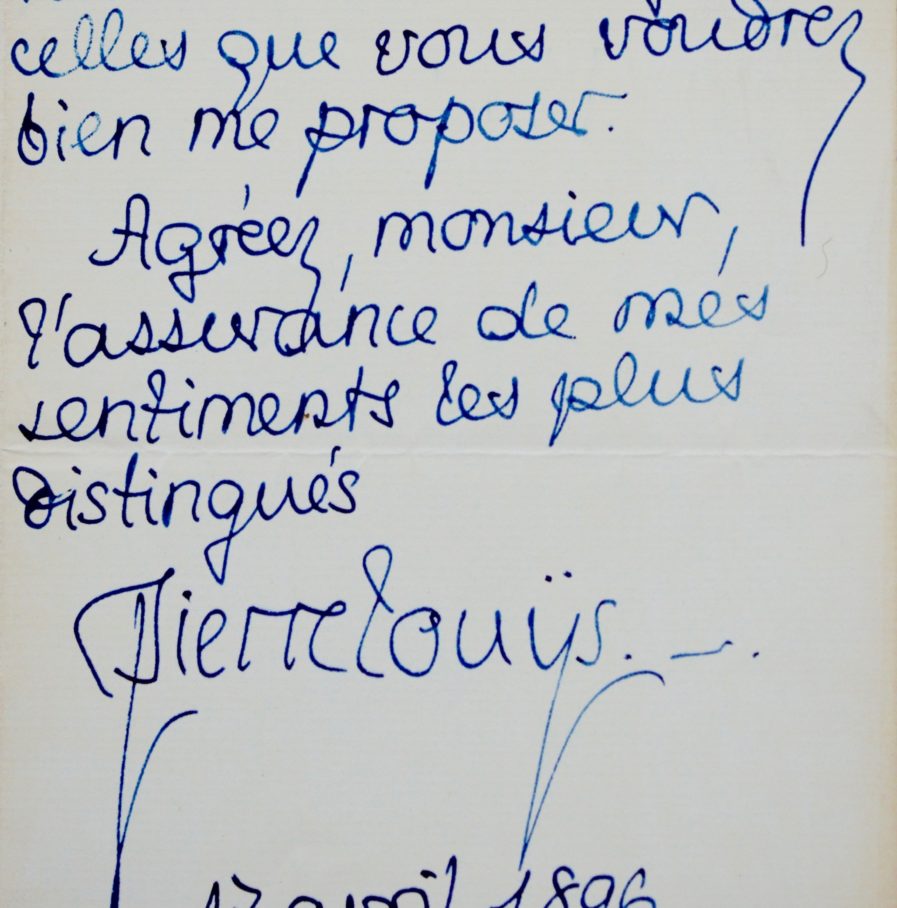 celles que vous voudrez
bien me proposer.
Agréez, monsieur,
l'assurance de mes
sentiments les plus
distingués
Pierre Louÿs. —.
avril 1896